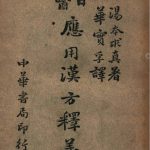 湯本求真著
華實孚譯
應用漢方釋義
中華書局印行